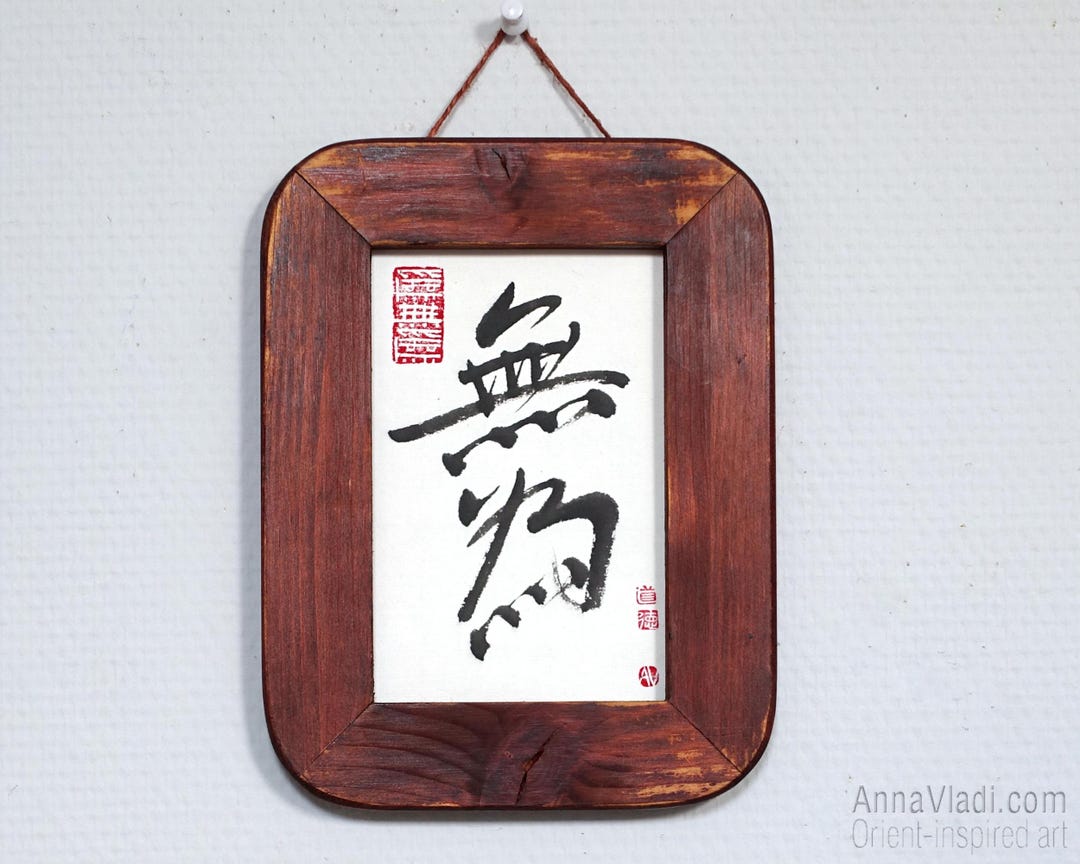 爲無爲
無為
道
德
AV
AnnaVladi.com
Orient-inspired art